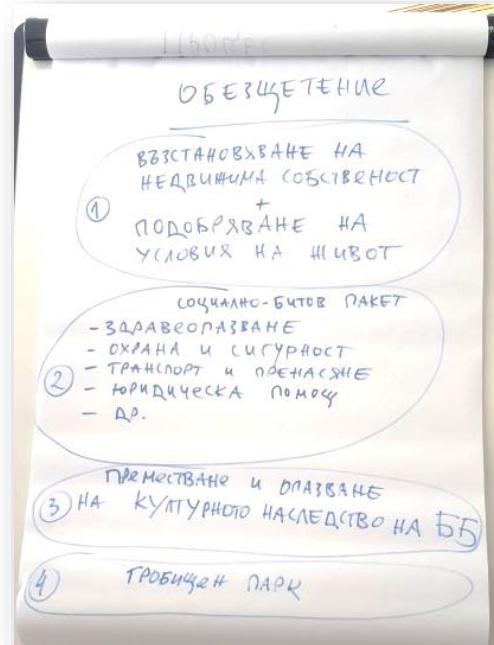 ОБЕЗЩЕТЕНИЕ
ВЪЗСТАНОВЯВАНЕ НА
НЕДВИЖИМА СОБСТВЕНОСТ
+
ПОДОБРЯВАНЕ НА
УСЛОВИЯ НА ЖИВОТ
1
СОЦИАЛНО-БИТОВ ПАКЕТ
- ЗДРАВЕОПАЗВАНЕ
- ОХРАНА И СИГУРНОСТ
- ТРАНСПОРТ И ПРЕНАСЯНЕ
2 - ЮРИДИЧЕСКА ПОМОЩ
- ДР.
ПРЕМЕСТВАНЕ И ОПАЗВАНЕ
3 НА КУЛТУРНОТО НАСЛЕДСТВО НА ББ
4 ГРОБИЩЕН ПАРК